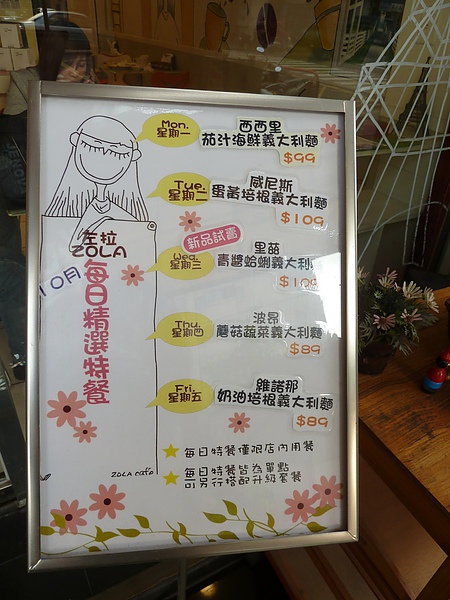 Mon.
星期一
西西里
茄汁海鮮義大利麵
$99
Tue.
星期二
威尼斯
蛋黃培根義大利麵
$109
左拉
ZOLA
10月
每日精選特餐
新品試賣
Wed.
星期三
里萌
青醬蛤蜊義大利麵
$109
Thu.
星期四
波昂
蘑菇蔬菜義大利麵
$89
Fri.
星期五
維諾那
奶油培根義大利麵
$89
每日特餐僅限店內用餐
每日特餐皆為單點
可另行搭配升級套餐
ZOLA cafe